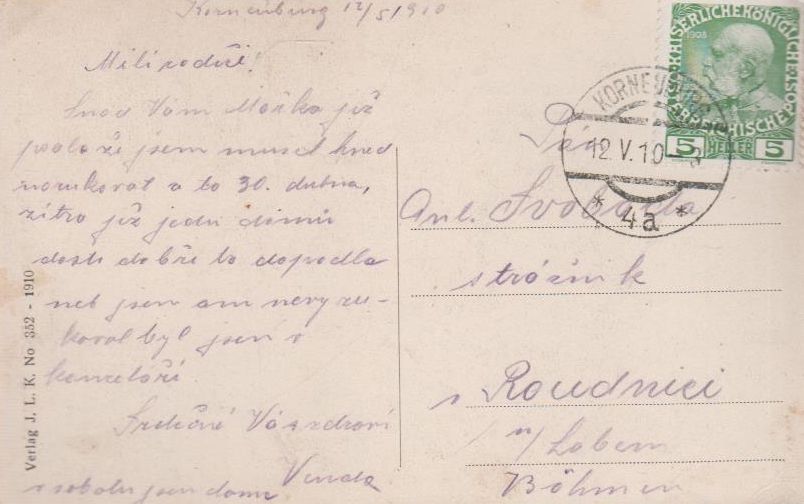 Korneuburg 12/5 1910
Milí rodiče!
Snad Vám Mařka již
jsem musel hned
narukovat a to 30. dubna,
zítra již jedu domů
dosti dobře to dopadlo
neb jsem ani nevyru-
koval byl jsem v
kanceláři.
Srdečně Vás zdraví
Venda
v sobotu jsem doma
Verlag J. L. K. No 352 - 1910
KAISERLICHE KÖNIGLICHE
ÖSTERREICHISCHE POST
1908
5 HELLER 5
KORNEUBURG
12.V.10
* 4a *
Pán
Ant. Svoboda
strážník
v Roudnici
n/Labem
Böhmen